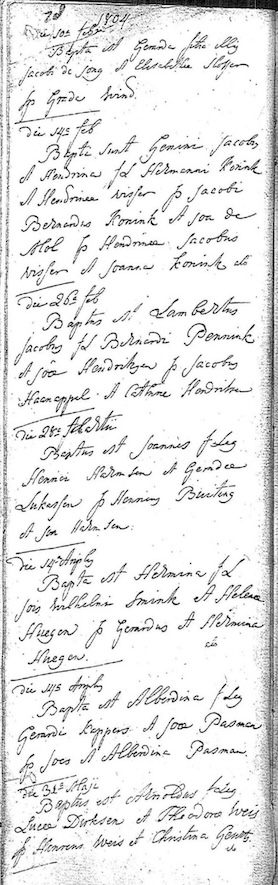 1804
die 10a feb
Bapta est Gerada filia illeg
Jacobi de Jong et Elisabethae
sp Grada Wind.
die 14a feb
Bapti sunt Gemini Jacobus
et Hendrina f L Hermanni Konink
et Hendrinea Visser sp Jacobi
Bernardus Konink et Joa de
Mol sp Hendrinea Jacobus
Visser et Joanna Konink etc
die 26a feb
Baptus est Lambertus
Jacobus f L Bernardi Pennink
et Joae Hendriksen sp Jacobus
Haenappel et Cathrine Hendriksen
die 28a
Baptus est Joannes f Leg
Hermen Harmsen et Geradea
Lukassen sp Bueting
et Joa Harmsen.
die 14a
Bapta est Hermina f L
Jois Wilhelmi Smink et Helena
Huegen sp Gerardus et Hermina
Huegen. etc
die 14a
Bapta est Alberdina f Leg
Gerardi Keppers et Joae Pasman
sp Joes et Alberdina Pasman.
die 31a Maji
Baptus est Arnoldus f Leg
Lucae Dirksen et Theodora Weis
sp Weis et Christina
etc